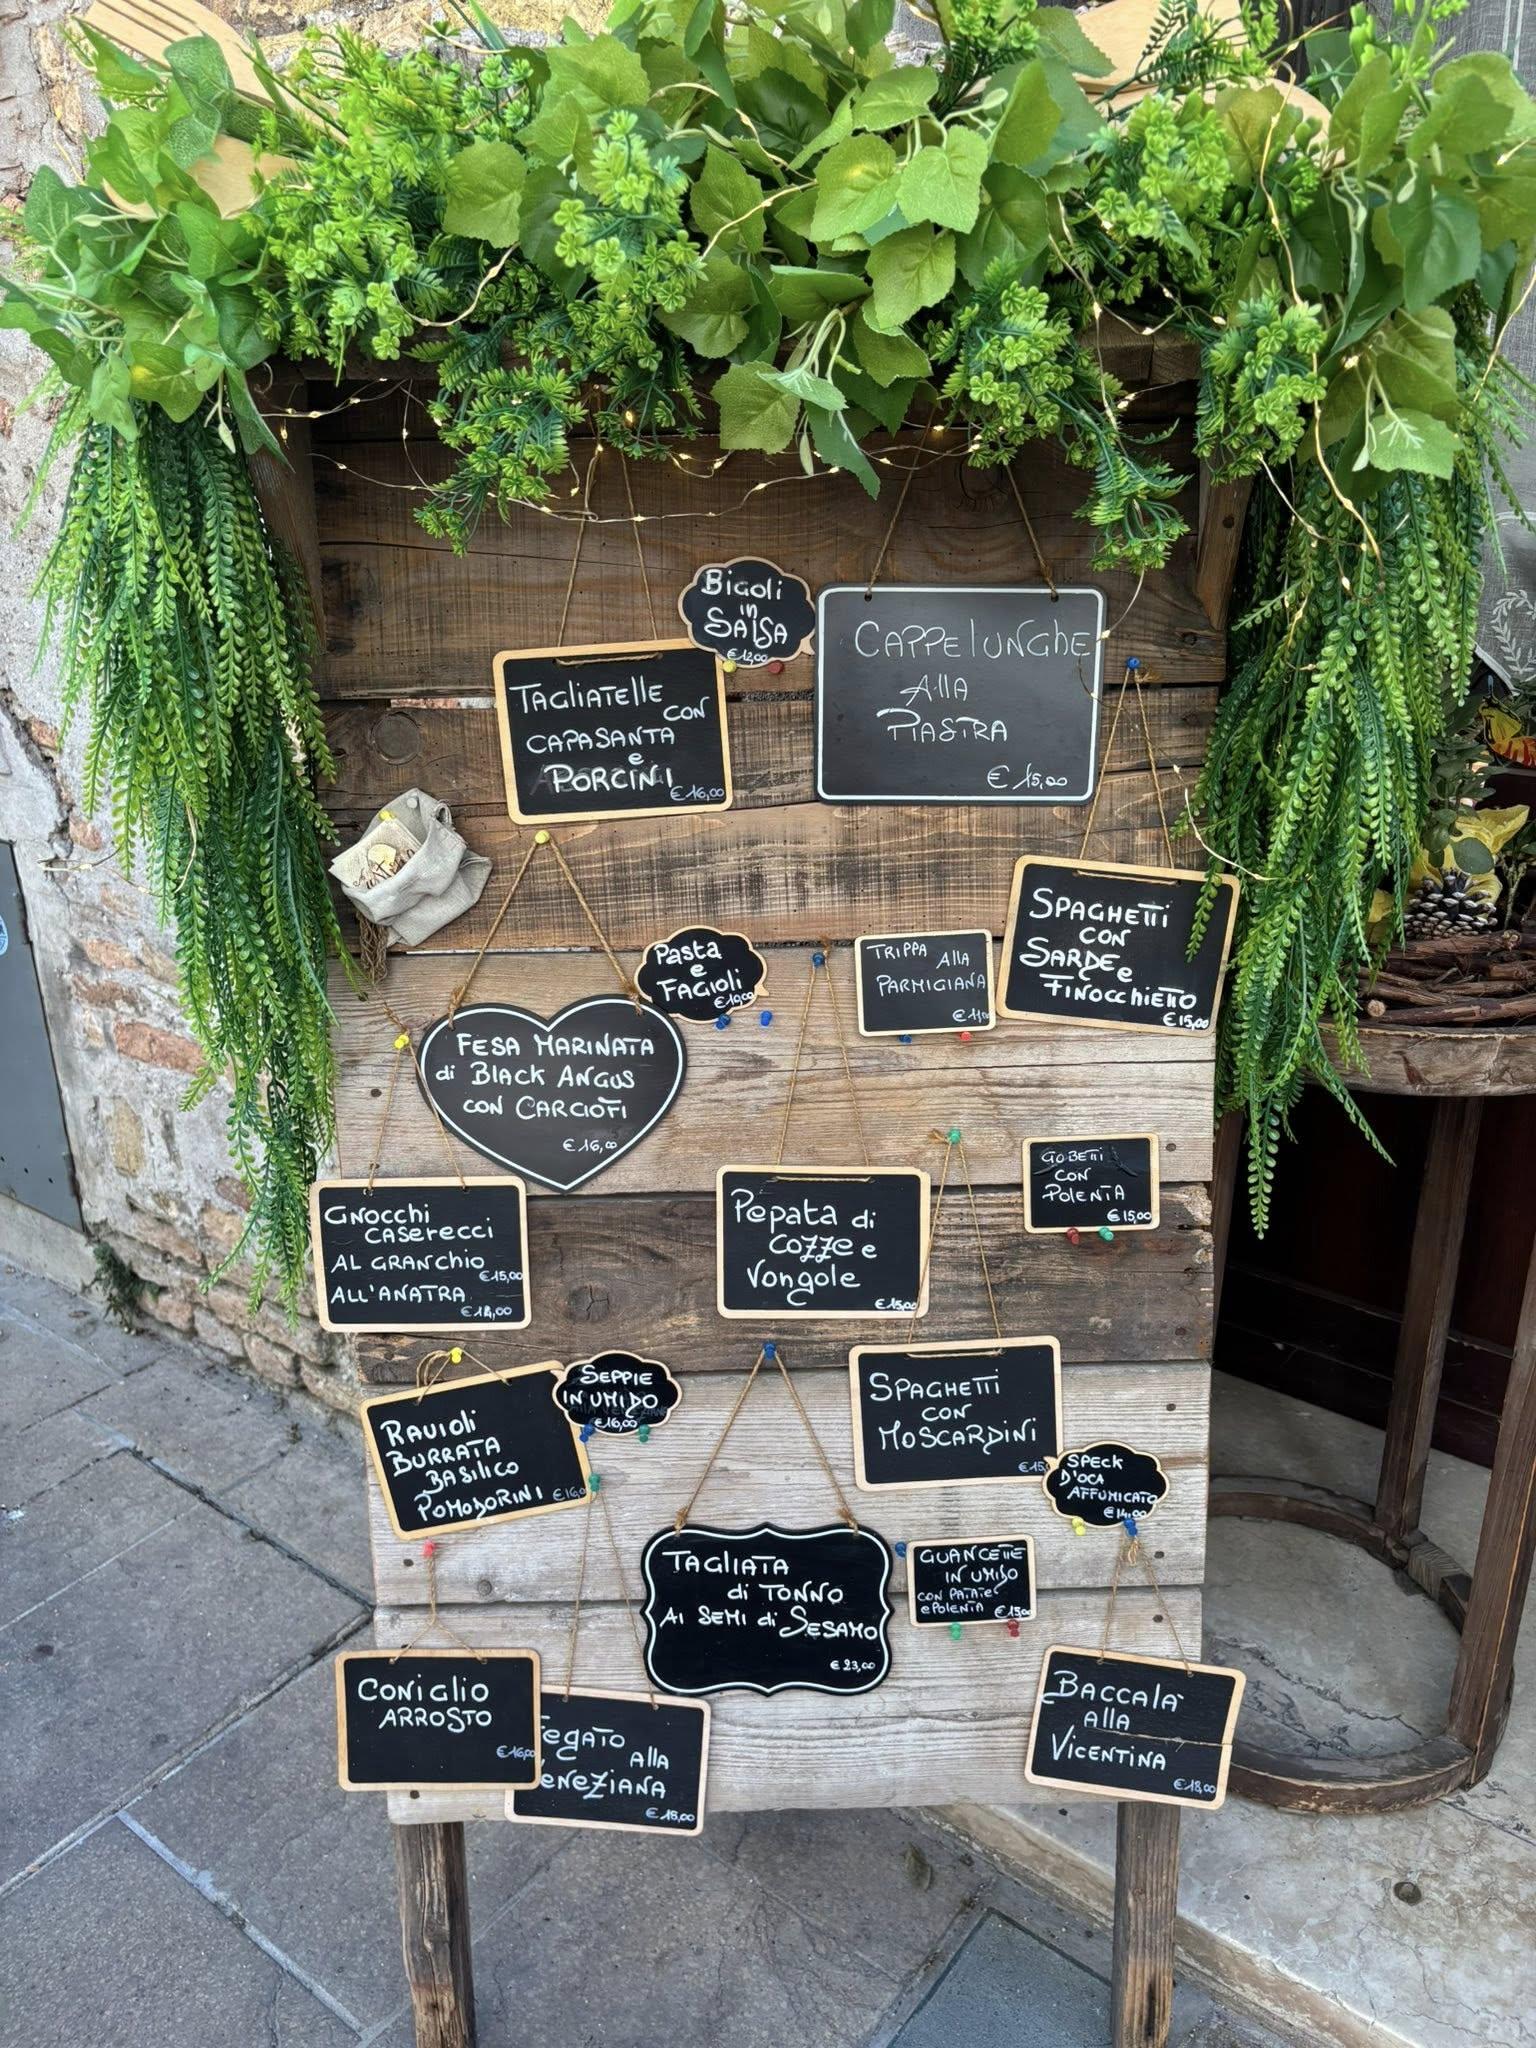 Bigoli
in
Salsa
€ 12,00
Cappelunghe
alla
Piastra
€ 15,00
Tagliatelle
con
capasanta
e
Porcini
€ 16,00
Spaghetti
con
Sarde e
Finocchietto
€ 15,00
Pasta
e
Fagioli
€ 10,00
Trippa alla
Parmigiana
€ 11,00
Fesa Marinata
di Black Angus
con Carciofi
€ 16,00
Gobetti
con
Polenta
€ 15,00
Gnocchi
caserecci
al granchio
€ 15,00
all'anatra
€ 14,00
Pepata di
cozze e
Vongole
€ 15,00
Seppie
in umido
€ 16,00
Spaghetti
con
Moscardini
€ 15,
Ravioli
Burrata
Basilico
Pomodorini € 16,0
Speck
d'oca
affumicato
€ 14,00
Tagliata
di Tonno
ai semi di Sesamo
€ 23,00
Guancette
in umido
con patate
e polenta € 15,00
Coniglio
arrosto
€ 16,00
Fegato
alla
Veneziana
€ 15,00
Baccalà
alla
Vicentina
€ 18,00